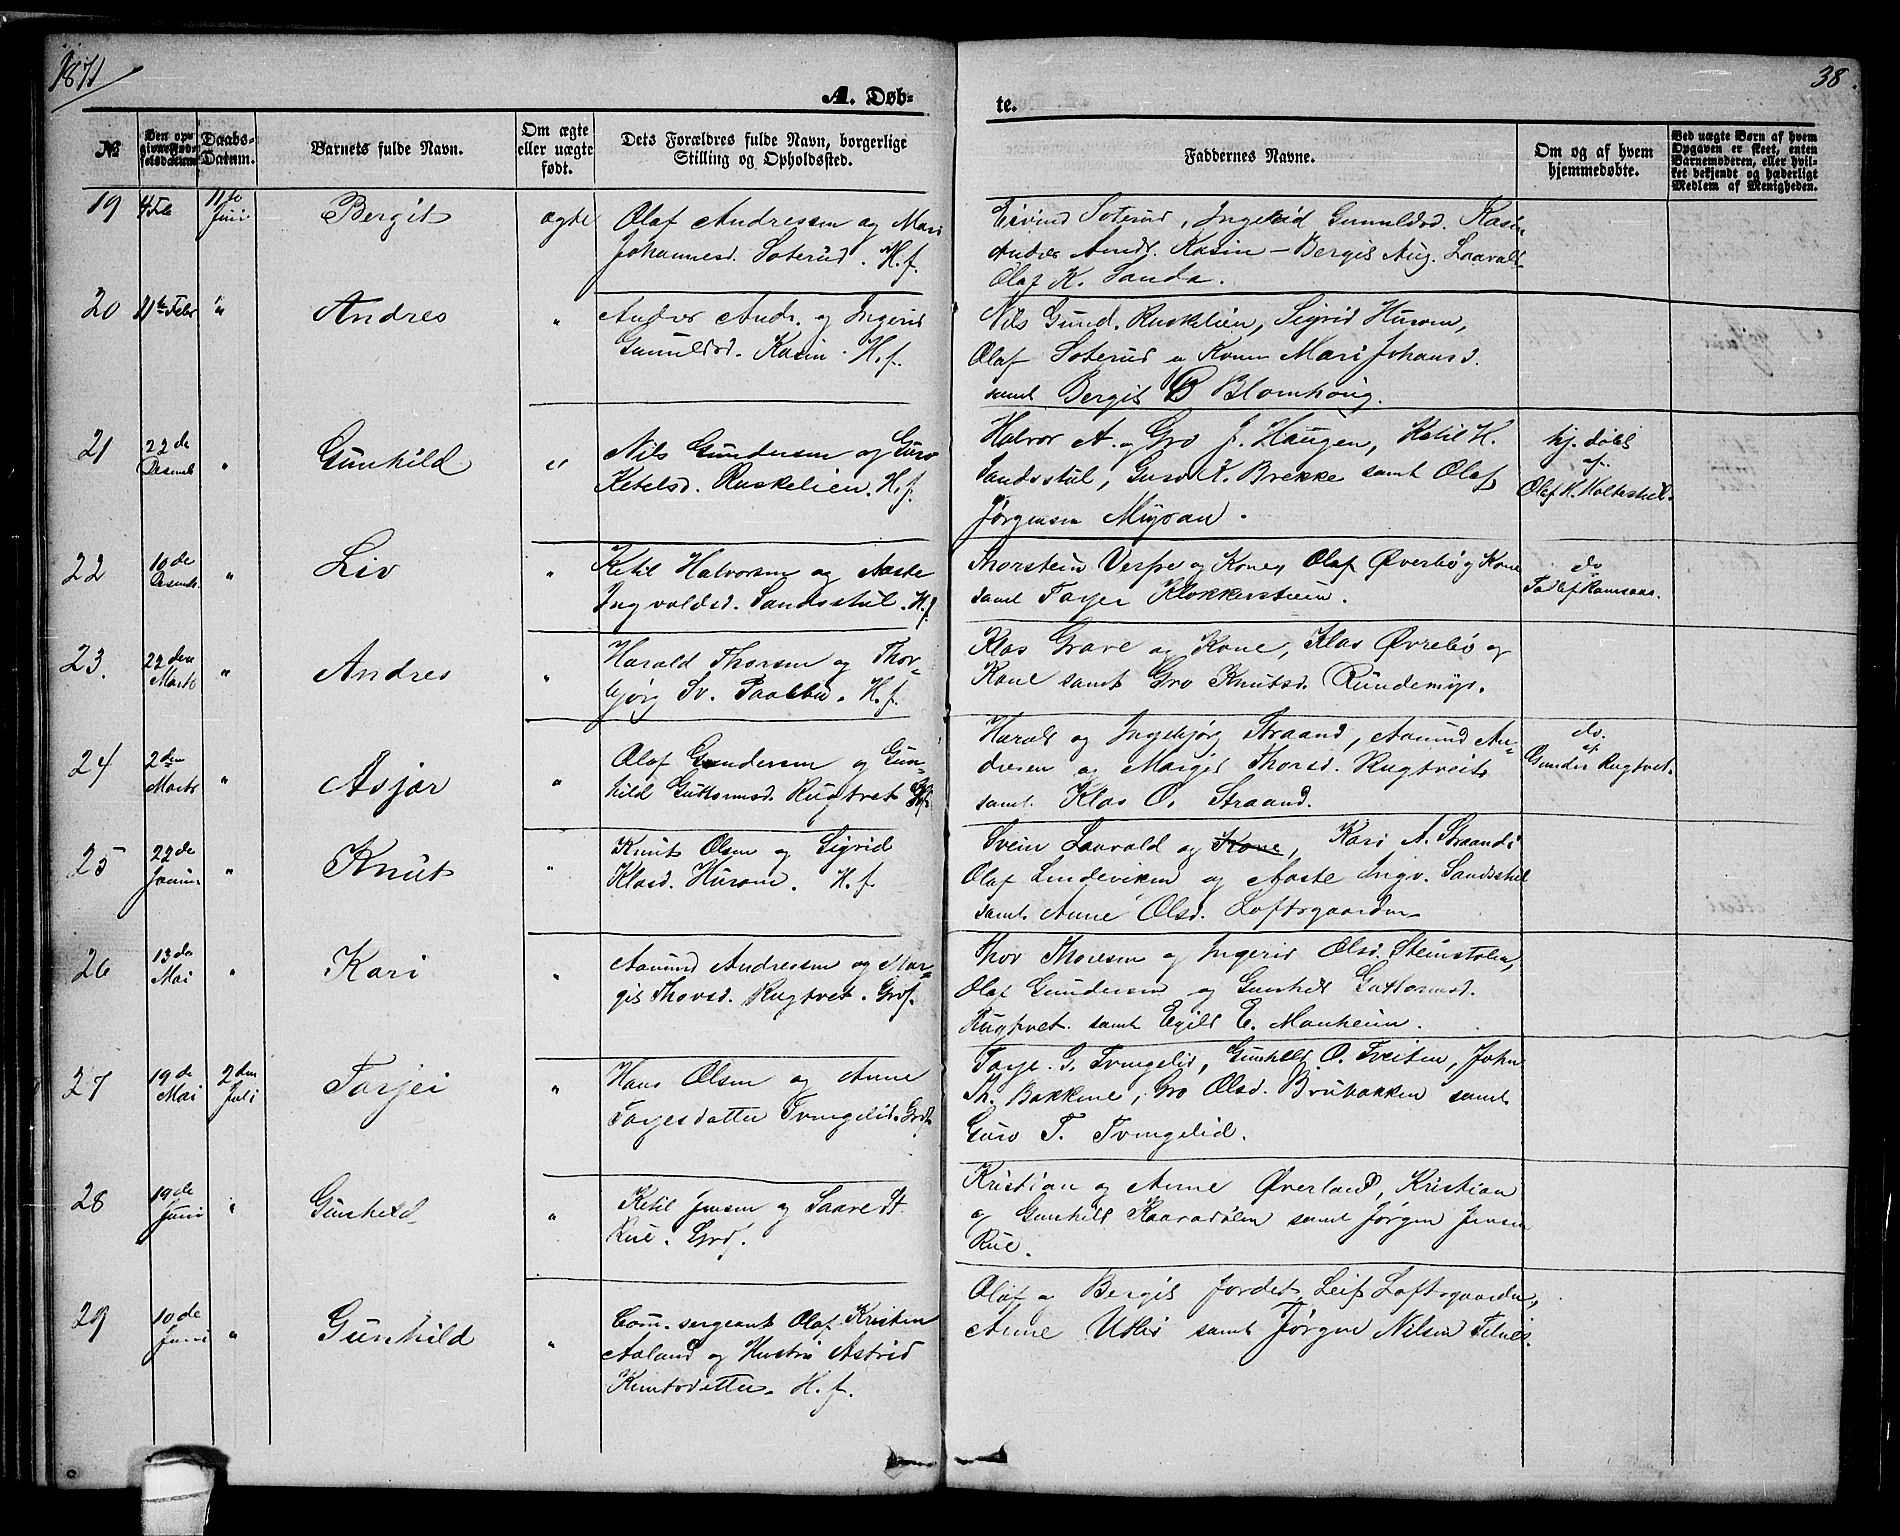 1871
38.
A. Døb-
te.
№
Den op-
givne Fød-
selsdatum
Daabs-
Datum.
Barnets fulde Navn.
Om ægte
eller uægte
født.
Dets Forældres fulde Navn, borgerlige
Stilling og Opholdssted.
Faddernes Navne.
Om og af hvem
hjemmedøbte.
Ved uægte Børn af hvem
Opgaven er skeet, enten
Barnemoderen, eller hvil-
ket bekjendt og hæderligt
Medlem af Menigheden.
19 4 Feb 11te Juni Bergit ægte Olaf Andressen og Mari
Johannesd. Soterud. H.f.
Eivind Soterud, Ingerid Gunnulds. Kasin
Andres Andr. Kasin - Bergit Aug. Laavald
Olaf K. Sanda.
20 11te Febr " Andres " Andres Andr. og Ingerid
Gunnuldsd. Kasin. H.f.
Nils Gund. Ruskelien, Sigrid Husom,
Olaf Soterud og Kone Mari Johansd.
samt Bergit B Blomhoug.
21 22de Desemb " Gunhild " Nils Gundersen og Guro
Ketilsd. Ruskelien. H.f.
Halvor A. og Gro J. Haugen, Ketil H.
Sandsstul, Guro K. Brekke samt Olaf
Jørgensen Myran.
hj. døbt
af
Olaf K. Holtestul.
22 10de Desemb. " Liv " Ketil Halvorsen og Aaste
Ingvoldsd. Sandsstul. H.f.
Thorstein Verpe og Kone, Olaf Øverbø og Kone
samt Torjer Klokkersteien.
do
Tollef Ramsaas.
23. 22den Marts " Andres " Harald Thorsen og Thor-
bjørg Sv. Paalbø. H.f.
Klas Grave og Kone, Klas Øvrebø og
Kone samt Gro Knutsd. Rundemyr.
24 2den Marts " Asjær " Olaf Gundersen og Gun-
hild Guttormsd. Rugtvet Grf.
Harald og Ingebjørg Straand, Aamund An-
dresen og Margit Thorsd. Rugtveit
samt Klas O. Straand.
do.
af
Gunder Rugtvet.
25 22de Januar " Knut " Knut Olsen og Sigrid
Klasd. Husom. H.f.
Svein Laavald og Kone, Kari A. Straand
Olaf Lindeviken og Aaste Ingv. Sandsstul
samt Anne Olsd. Loftsgaarden
26 13de Mai " Kari " Aamund Andressen og Mar-
git Thorsd. Rugtvet. Grf.
Thov Thovesen og Ingerid Olsd. Steinstolen,
Olaf Gundersen og Gunhild Guttormsd.
Rugtvet samt Egild E. Manheim.
27 19de Mai 2den Juli Torjei " Hans Olsen og Anne
Torjesdatter Tvingelid. Grf.
Torje G. Tvingelid, Gunhild O. Tveiten, John
Th. Bakkene, Gro Olsd. Brubakken samt
Guro T. Tvingelid.
28 19de Juni " Gunhild " Ketil Jensen og Saare St.
Rue. Grf.
Kristian og Anne Øverland, Kristian
og Gunhild Kaaradalen samt Jørgen Jensen
Rue.
29 10de Juni " Gunhild " Com. sergeant Olaf Kristen
Aaland og Hustru Astrid
Knutsdatter. H.f.
Olaf og Bergit Jordet, Leif Loftsgaarden,
Anne Utbø samt Jørgen Nilsen Felnes.